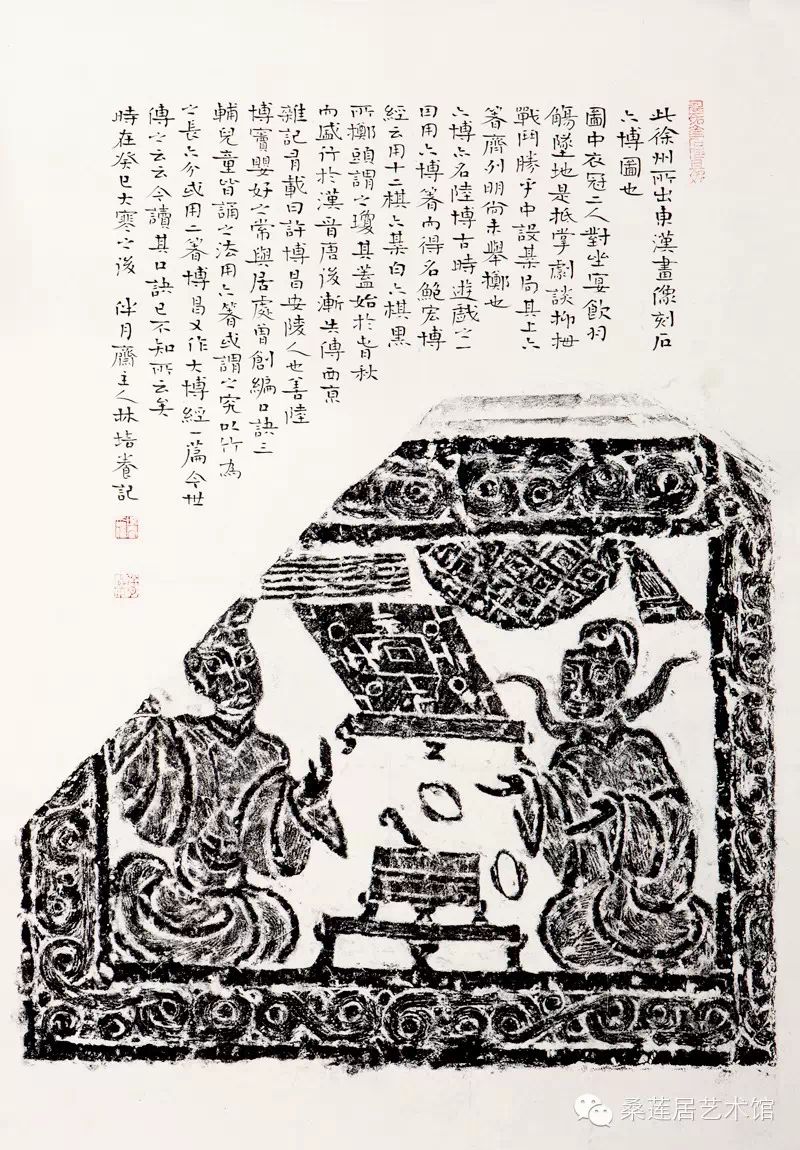 此徐州所出東漢畫像刻石
六博圖也
圖中衣冠二人對坐宴飲羽
觴墜地是抵掌劇談抑拇
戰鬥勝乎中設棊局其上六
箸齊列明尚未舉擲也
六博亦名陸博古時遊戲之一
因用六博箸而得名鮑宏博
經云用十二棋六棊白六棋黑
所擲頭謂之瓊其蓋始於春秋
而盛行於漢晉唐後漸失傳西京
雜記有載曰許博昌安陵人也善陸
博竇嬰好之常與居處曾創編口訣三
輔兒童皆誦之法用六箸或謂之究以竹為
之長六分或用二箸博昌又作大博經一篇今世
傳之云云今讀其口訣已不知所云矣
時在癸巳大寒之後 伴月齋主人林培養記
桑莲居艺术馆